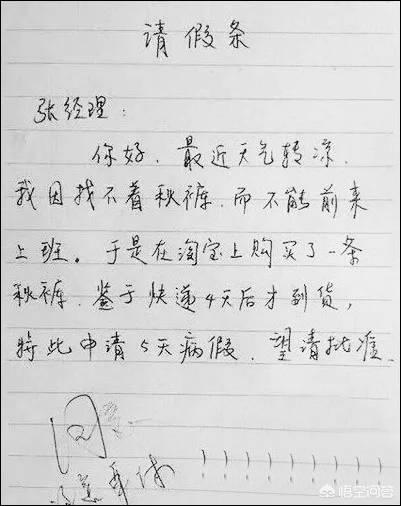 请假条
张经理：
你好，最近天气转凉，
我因找不着秋裤，而不能前来
上班。于是在淘宝上购买了一条
秋裤，鉴于快递4天后才到货，
特此申请5天病假，望请批准。
同意
悟空问答